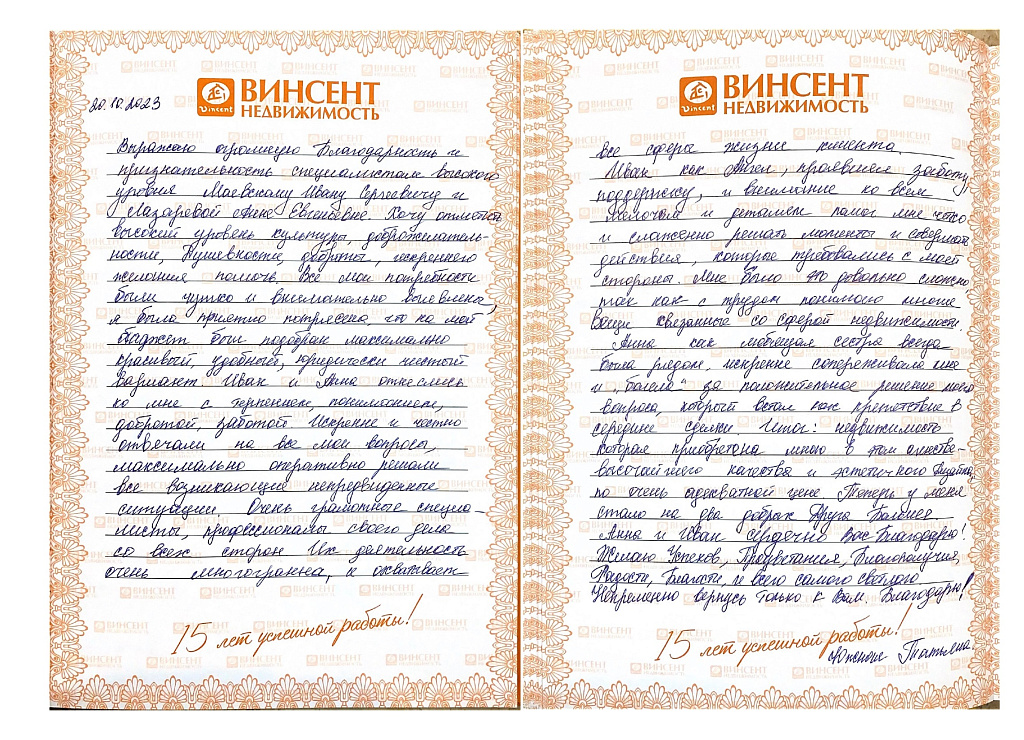 20.10.2023
Vincent
ВИНСЕНТ
НЕДВИЖИМОСТЬ
Выражаю огромную Благодарность и
признательность специалистам высокого
уровня Маевскому Ивану Сергеевичу и
Лазаревой Анне Евгеньевне. Хочу отметить
высокий уровень культуры, доброжелатель-
ности, Душевности, доброты, искреннего
желания помочь. Все мои потребности
были чутко и внимательно выявлены,
я была приятно потрясена, что на мой
бюджет был подобран максимально
красивый, удобный, юридически чистый
вариант. Иван и Анна отнеслись
ко мне с терпением, пониманием,
добротой, заботой. Искренне и честно
отвечали на все мои вопросы,
максимально оперативно решали
все возникающие непредвиденные
ситуации. Очень грамотные специа-
листы, профессионалы своего дела
со всех сторон. Их деятельность
очень многогранна, и охватывает
15 лет успешной работы!
Vincent
ВИНСЕНТ
НЕДВИЖИМОСТЬ
все сферы жизни клиента.
Иван как Ангел, проявивший заботу,
поддержку, и внимание ко всем
мелочам и деталям помог мне четко
и слаженно решать моменты и
действия, которые требовались с моей
стороны. Мне было это довольно сложно
так как с трудом понимаю многие
Вещи связанные со сферой недвижимости.
Анна как любящая сестра всегда
была рядом, искренне сопереживала мне
и „болела" за положительное решение моего
вопроса, который встал как препятствие в
середине сделки. Итог: недвижимость
которая приобретена мною в этом агенстве-
высочайшего качества и эстетичного
по очень адекватной цене. Теперь у меня
стало на два добрых Друга Более.
Анна и Иван сердечно Вас Благодарю!
Желаю Успехов, Процветания, Благополучия,
Радости, Благости, и всего самого светлого.
Непременно вернусь только к Вам. Благодарю!
15 лет успешной работы!
Татьяна